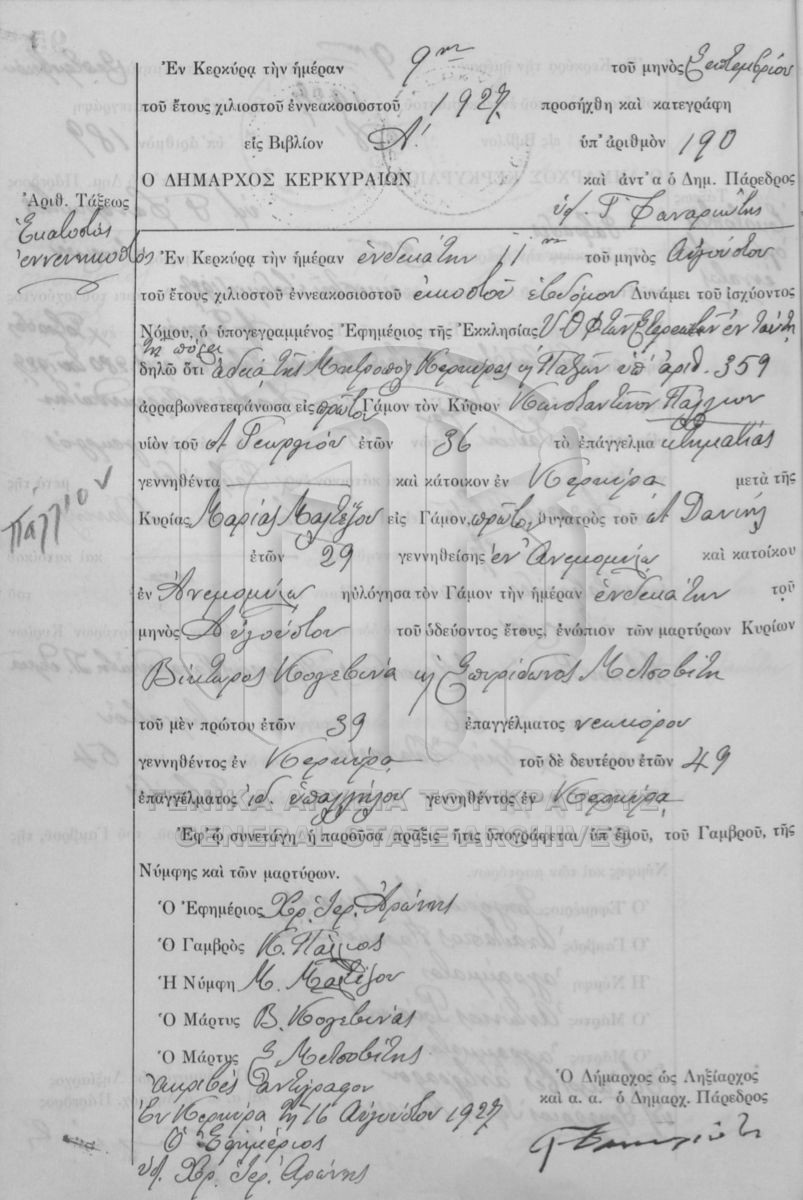 Ἐν Κερκύρᾳ τὴν ἡμέραν 9ην τοῦ μηνὸς Σεπτεμβρίου
τοῦ ἔτους χιλιοστοῦ ἐννεακοσιοστοῦ 1927 προσήχθη καὶ κατεγράφη
εἰς Βιβλίον Α' ὑπ' ἀριθμὸν 190
Ο ΔΗΜΑΡΧΟΣ ΚΕΡΚΥΡΑΙΩΝ καὶ ἀντ' α ὁ Δημ. Πάρεδρος
Ἀριθ. Τάξεως
ὑπ. Γ. Φαναριώτης
Ἑκατοστὸς
ἐννενηκοστὸς
Ἐν Κερκύρᾳ τὴν ἡμέραν ἑνδεκάτην 11ην τοῦ μηνὸς Αὐγούστου
τοῦ ἔτους χιλιοστοῦ ἐννεακοσιοστοῦ εἰκοστοῦ ἑβδόμου Δυνάμει τοῦ ἰσχύοντος
Νόμου, ὁ ὑπογεγραμμένος Ἐφημέριος τῆς Ἐκκλησίας Υ.Θ. τῶν ἐν ταύτῃ
τῇ πόλει
δηλῶ ὅτι ἀδείᾳ τῆς Μητροπόλ. Κερκύρας κ Παξῶν ὑπ' ἀριθ. 359
ἀρραβωνεστεφάνωσα εἰς πρῶτον Γάμον τὸν Κύριον Κωνσταντῖνον Πάλλιον
υἱὸν τοῦ Γεωργίου ἐτῶν 36 τὸ ἐπάγγελμα κτηματίας
Πάλλιον
γεννηθέντα καὶ κάτοικον ἐν Κερκύρᾳ μετὰ τῆς
Κυρίας Μαρίας Μαλτέζου εἰς Γάμον πρῶτον θυγατρὸς τοῦ Δανιήλ
ἐτῶν 29 γεννηθείσης ἐν Ἀνεμομύλῳ καὶ κατοίκου
ἐν Ἀνεμομύλῳ ηὐλόγησα τὸν Γάμον τὴν ἡμέραν ἑνδεκάτην τοῦ
μηνὸς Αὐγούστου τοῦ ὁδεύοντος ἔτους, ἐνώπιον τῶν μαρτύρων Κυρίων
Βίκτωρος Κολεβινᾶ κ Σπυρίδωνος Μετσοβίτη
τοῦ μὲν πρώτου ἐτῶν 39 ἐπαγγέλματος νεωκόρου
γεννηθέντος ἐν Κερκύρᾳ τοῦ δὲ δευτέρου ἐτῶν 49
ἐπαγγέλματος ἰδ. ὑπαλλήλου γεννηθέντος ἐν Κερκύρᾳ
ΓΕΝΙΚΑ ΑΡΧΕΙΑ ΤΟΥ ΚΡΑΤΟΥΣ
Ἐφ' ᾧ συνετάγη ἡ παροῦσα πρᾶξις ἥτις ὑπογράφεται ὑπ' ἐμοῦ, τοῦ Γαμβροῦ, τῆς
GENERAL STATE ARCHIVES
Νύμφης καὶ τῶν μαρτύρων.
Ὁ Ἐφημέριος Χρ. Ἱερ. Ἀρώνης
Ὁ Γαμβρὸς Κ. Πάλλιος
Ἡ Νύμφη Μ. Μαλτέζου
Ὁ Μάρτυς Β. Κολεβινᾶς
Ὁ Μάρτυς Σ Μετσοβίτης
Ἀκριβὲς ἀντίγραφον
Ἐν Κερκύρᾳ τῇ 16 Αὐγούστου 1927
Ὁ Ἐφημέριος
ὑπ. Χρ. Ἱερ. Ἀρώνης
Ὁ Δήμαρχος ὡς Ληξίαρχος
καὶ α. α. ὁ Δημαρχ. Πάρεδρος
Γ Φαναριώτη